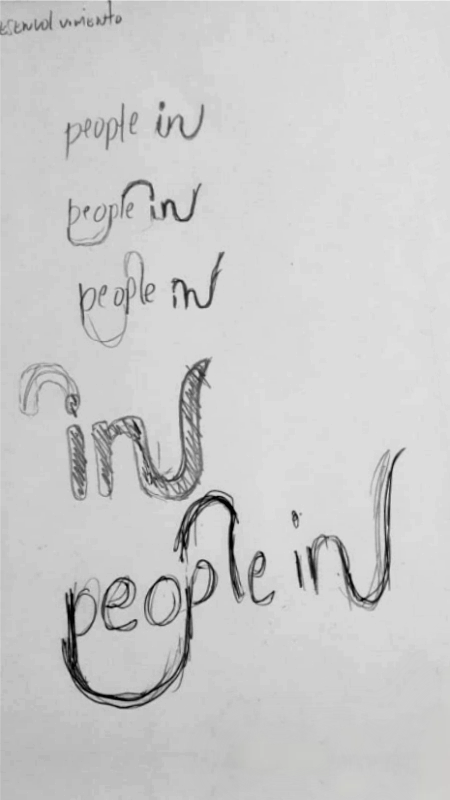 esenvolvimiento
people in
people in
people in
in
people in